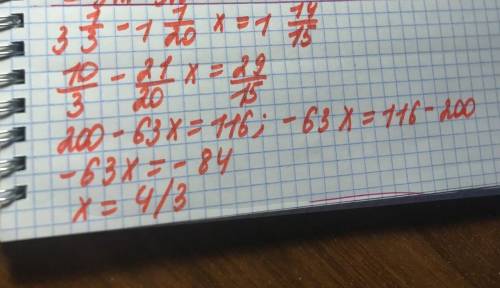 3 1/3 - 1 1/20 x = 1 14/15
10/3 - 21/20 x = 29/15
200 - 63x = 116; - 63x = 116 - 200
- 63x = - 84
x = 4/3